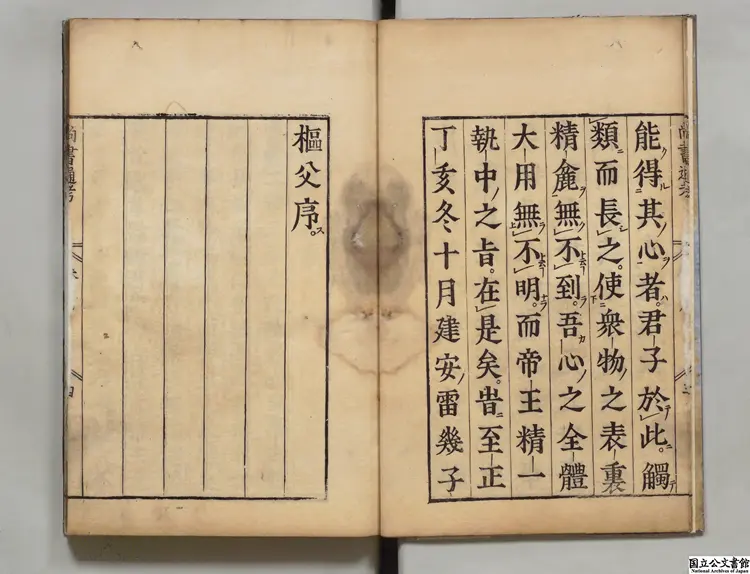 能得其心者。君子於此。觸
類而長之。使衆物之表裏
精麄無不到。吾心之全體
大用無不明。而帝王精一
執中之旨。在是矣。旹至正
丁亥冬十月建安雷幾子
樞父序。
尚書通考
国立公文書館
National Archives of Japan